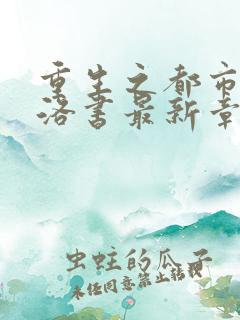 重生之都市
洛书最新章
虫蛀的瓜子
未经同意禁止转载